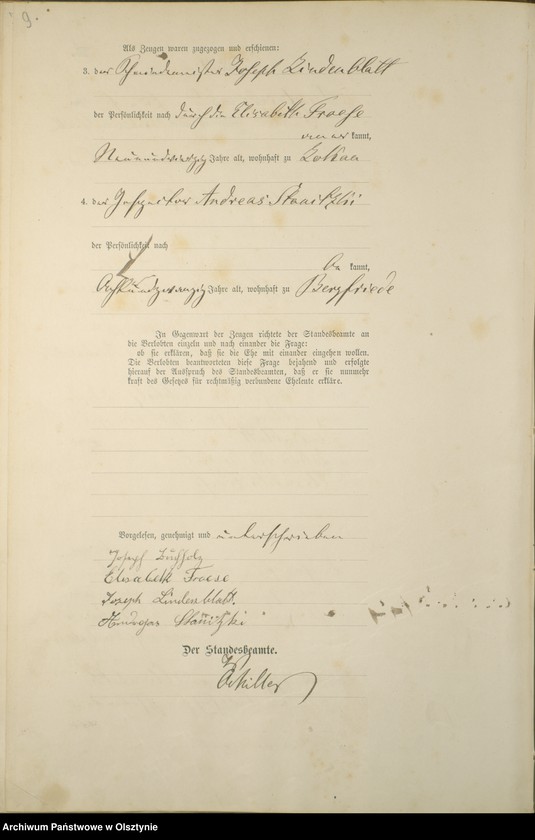 9.
Als Zeugen waren zugezogen und erschienen:
3. der Schmiedemeister Joseph Lindenblatt
der Persönlichkeit nach durch die Elisabeth Froese
aner kannt,
Neunundvierzig Jahre alt, wohnhaft zu Lokau
4. der Inspektor Andreas
der Persönlichkeit nach
be kannt,
Achtundzwanzig Jahre alt, wohnhaft zu Bergfriede
In Gegenwart der Zeugen richtete der Standesbeamte an
die Verlobten einzeln und nach einander die Frage:
ob sie erklären, daß sie die Ehe mit einander eingehen wollen.
Die Verlobten beantworteten diese Frage bejahend und erfolgte
hierauf der Ausspruch des Standesbeamten, daß er sie nunmehr
kraft des Gesetzes für rechtmäßig verbundene Eheleute erkläre.
Vorgelesen, genehmigt und unterschrieben
Joseph Buchholz
Elisabeth Froese
Joseph Lindenblatt.
Der Standesbeamte.
Schiller
Archiwum Państwowe w Olsztynie